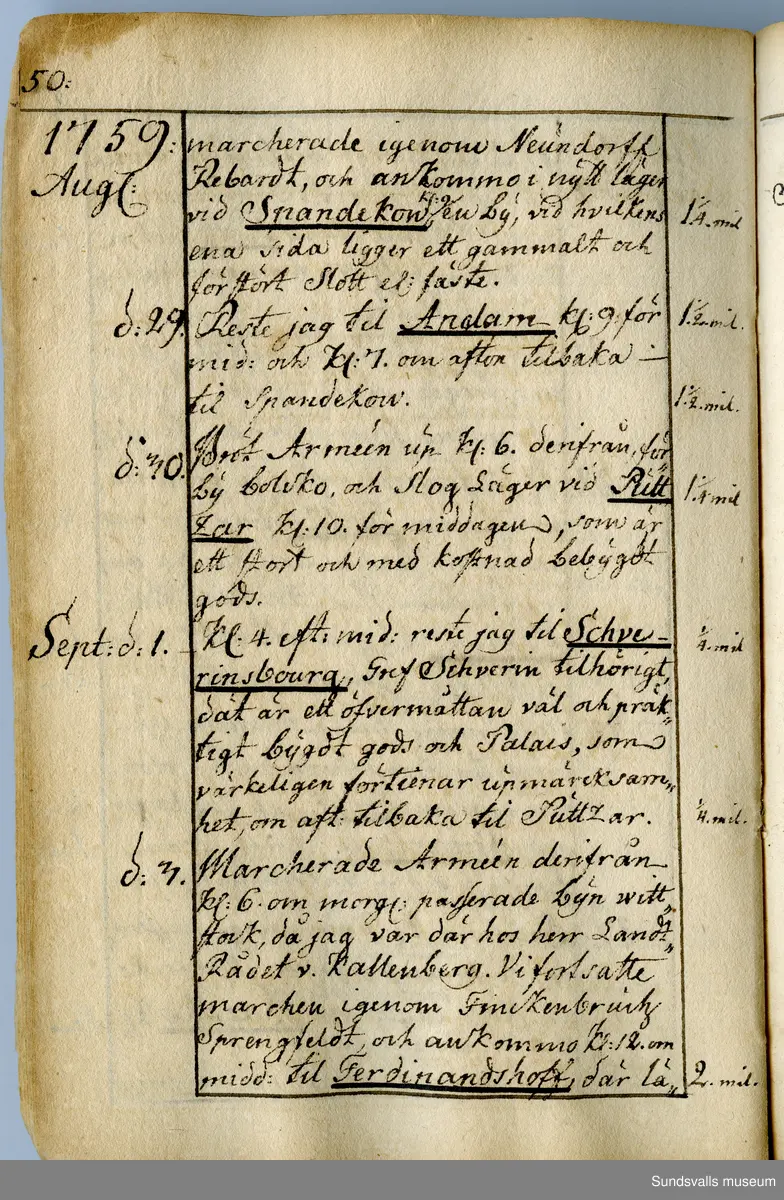 50:
1759: marcherade igenom Neündorff
Aug: Rebardt, och ankommo i nÿtt läger
vid Spandekow, en bÿ, vid hvilkens 1¼. mil
ena sida ligger ett gammalt och
förstört Slott el: fäste.
d: 29. Reste jag til Anclam kl: 9. för 1½. mil.
mid: och kl: 7. om afton tilbaka –
til Spandekow. 1½. mil.
d: 30. Bröt Arméen up kl: 6. derifrån, för„
bÿ bolsko, och Slog Läger vid Pütt 1¼ mil
zar kl: 10. för middagen, som är
ett stort och med kostnad bebÿgdt
gods.
Sept: d: 1. Kl: 4. eft: mid: reste jag til Schve– ¼. mil
rinsbourg, Gref Schverin tilhörigt,
dät är ett öfvermåttan väl och präk„
tigt bÿgdt gods och Palais, som
värkeligen förtienar upmärcksam„
het, om aft: tilbaka til Püttzar. ¼. mil.
d: 3. Marcherade Arméen derifrån
kl: 6. om morg: passerade bÿn witt„
stock, då jag var där hos herr Landt„
Rådet v. Kallenberg. Vi fortsatte
marchen igenom Finckenbruch
Sprengfeldt, och ankommo kl: 12. om
midd: til Ferdinandshoff, där lä„ 2. mil.
Sundsvalls museum